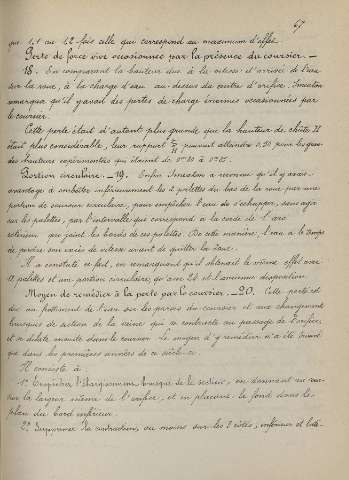 67
que 1,1 ou 1,2 fois celle qui correspond au maximum d'effet.
Perte de force vive occasionnée par la présence du coursier. —
18. En comparant la hauteur due à la vitesse d'arrivée de l'eau
sur la roue, à la charge d'eau au-dessus du centre d'orifice, Smeaton
remarqua qu'il y avait des pertes de charge énormes occasionnées par
le coursier.
Cette perte était d'autant plus grande que la hauteur de chute H
était plus considérable, leur rapport pouvant atteindre 0,50 pour les gran-
des hauteurs expérimentées qui étaient de
Portion circulaire. — 19. Enfin Smeaton a reconnu qu'il y a avais-
avantage à emboîter inférieurement les 2 palettes du bas de la roue par une
portion de coursier circulaire, pour empêcher l'eau de s'échapper, sans agir
sur les palettes, par l'intervalle qui correspond à la corde de l'arc
extérieur qui joint les bords de ces palettes. De cette manière, l'eau a le temps
de perdre son excès de vitesse avant de quitter la roue.
Il a constaté, en fait, en remarquant qu'il obtenait le même effet avec
12 palettes et une portion circulaire, qu'avec 24 et l'ancienne disposition.
Moyen de remédier à la perte par le coursier. — 20. Cette perte est
due au frottement de l'eau sur les parois du coursier et aux changements
brusques de section de la veine qui se contracte au passage de l'orifice,
et se dilate ensuite dans le coursier. Le moyen d'y remédier n'a été trouvé
que dans les premières années de ce siècle-ci.
Il consiste à
1° Empêcher l'élargissement brusque de la section, en donnant au cour-
sier la largeur même de l'orifice, et en plaçant le fond dans le
plan du bord inférieur.
2° Supprimer la contraction, au moins sur les 3 côtés, inférieur et laté-